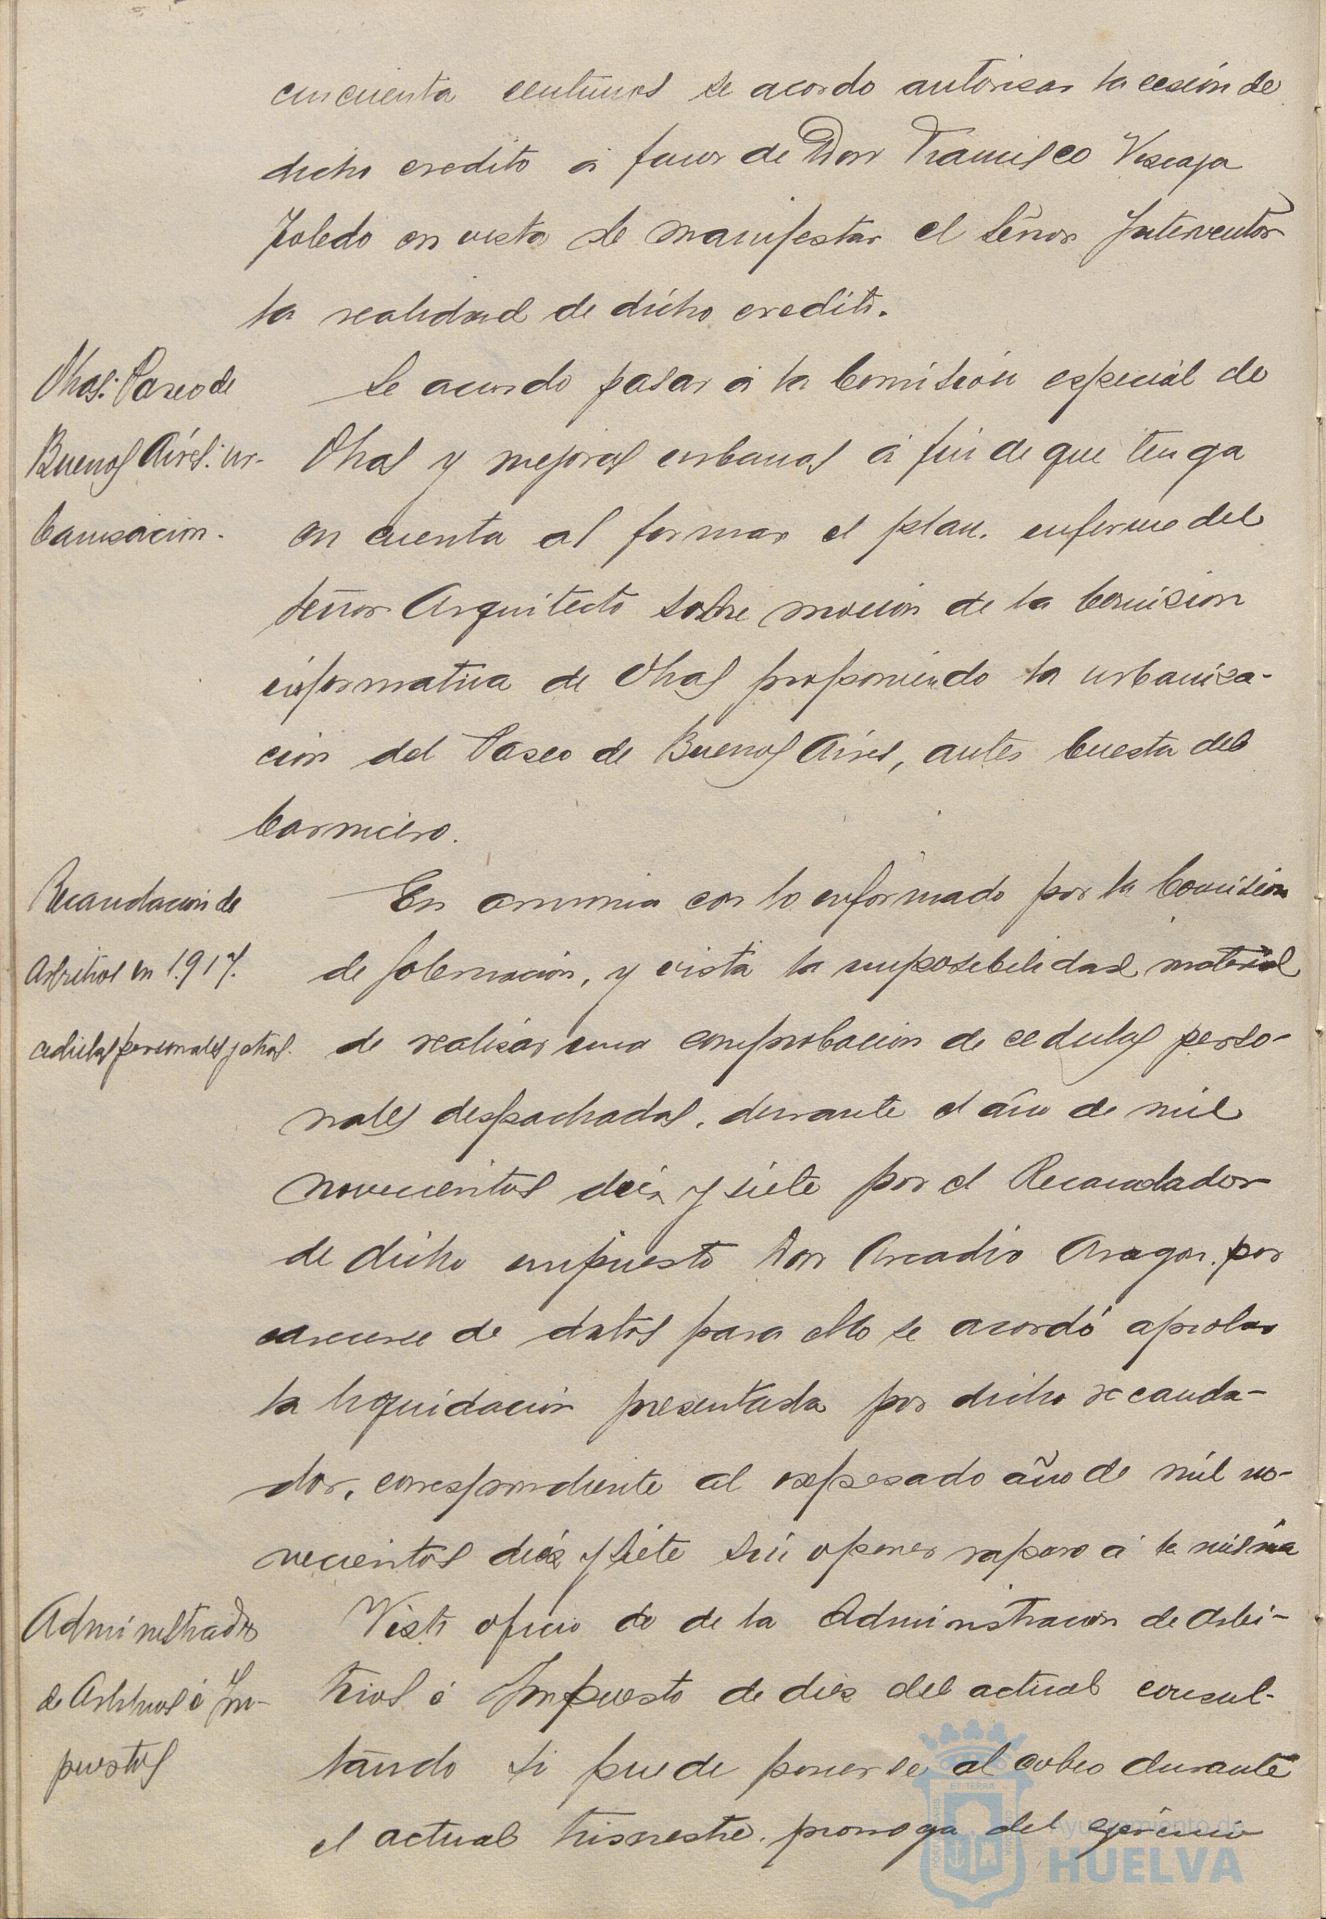 cincuenta centimos se acordo autorisar la cesión de
dicho credito á favor de Don Francisco Viscaya
Toledo en vista de manifestar el Señor Interventor
la realidad de dicho credito.
Obras: Paseo de
Buenos Aires: ur-
banisacion.
Se acordo pasar á la Comisión especial de
Obras y mejoras urbanas á fin de que tenga
en cuenta al formar el plan, informe del
Señor Arquitecto sobre moción de la Comision
informativa de Obras proponiendo la urbanisa-
ción del Paseo de Buenos Aires, antes Cuesta del
Carnicero.
Recaudacion de
Arbitrios en 1.917.
cedulas personales y otras.
En armonia con lo informado por la Comisión
de Gobernación, y vista la imposibilidad material
de realisar una comprobacion de cedulas perso-
nales despachadas, durante el año de mil
novecientos diéz y siete por el Recaudador
de dicho impuesto Don Arcadio Aragon, por
carecerse de datos para ello se acordó aprobar
la liquidación presentada por dicho recauda-
dor, correspondiente al expresado año de mil no-
vecientos diéz y siete sin oponer reparo á la misma
Administrador
de Arbitrios é Im-
puestos
Visto oficio de la Administracion de Arbi-
trios é Impuesto de diez del actual consul-
tando si puede ponerse al cobro durante
el actual trimestre, prorroga del ejercicio
Ayuntamiento de
HUELVA